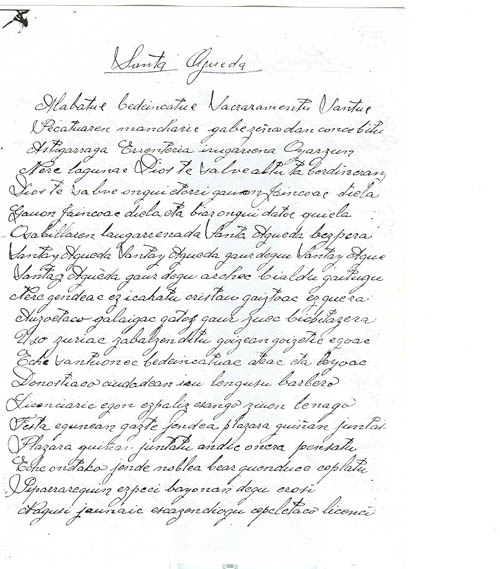 Santa Agueda
Alabatue bedeincatue Sacraramentu Santue
Pecatuaren mancharic gabe ceña dan concebitu
Astigarraga Errenteria irugarrena Oyarzun
Nere lagunac Dios te salve
Dios te salve ongui etorri gauon Jaincoac diela
Gauon Jaincoac diela eta biar ongui datoc quiela
Osabillaren laugarrenada Santa Agueda bezpera
Santa y Agueda Santa y Agueda gaur degu Santa y Ague
Santa y Agueda gaur degu
Nere gendeac ez icaratu cristau gaiztoac ez guera
Auzoetaco galaigac gatoz gaur zuec bisitatzera
Uso zuriac zabaltzen ditu goizean goizetic egoac
Eche santuonec bedeincatuac ateac eta leyoac
Donostiaco ciudadean iru lengusu barbero
Licenciaric egon ezpaliz esango ziuen benago
Festa egunean gazte jendea plazara guiñan juntatu
Plazara guiñan juntatu andic onera pensatu
Eche ontako jende noblea bear guenduce coplatu
Piparrarequin ezpeci bayonan degu erosi
Nagusi jaunaic escazen diegu copletaco licenci